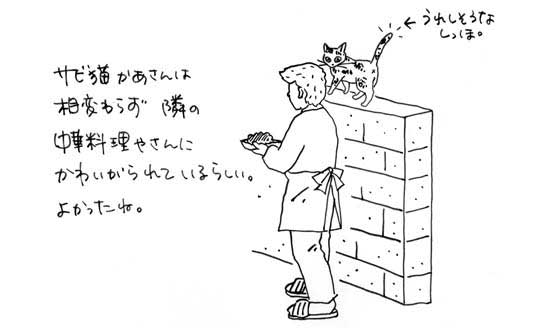 サビ猫かあさんは
相変わらず 隣の
中華料理やさんに
かわいがられているらしい。
よかったね。
←うれしそうな
しっぽ。